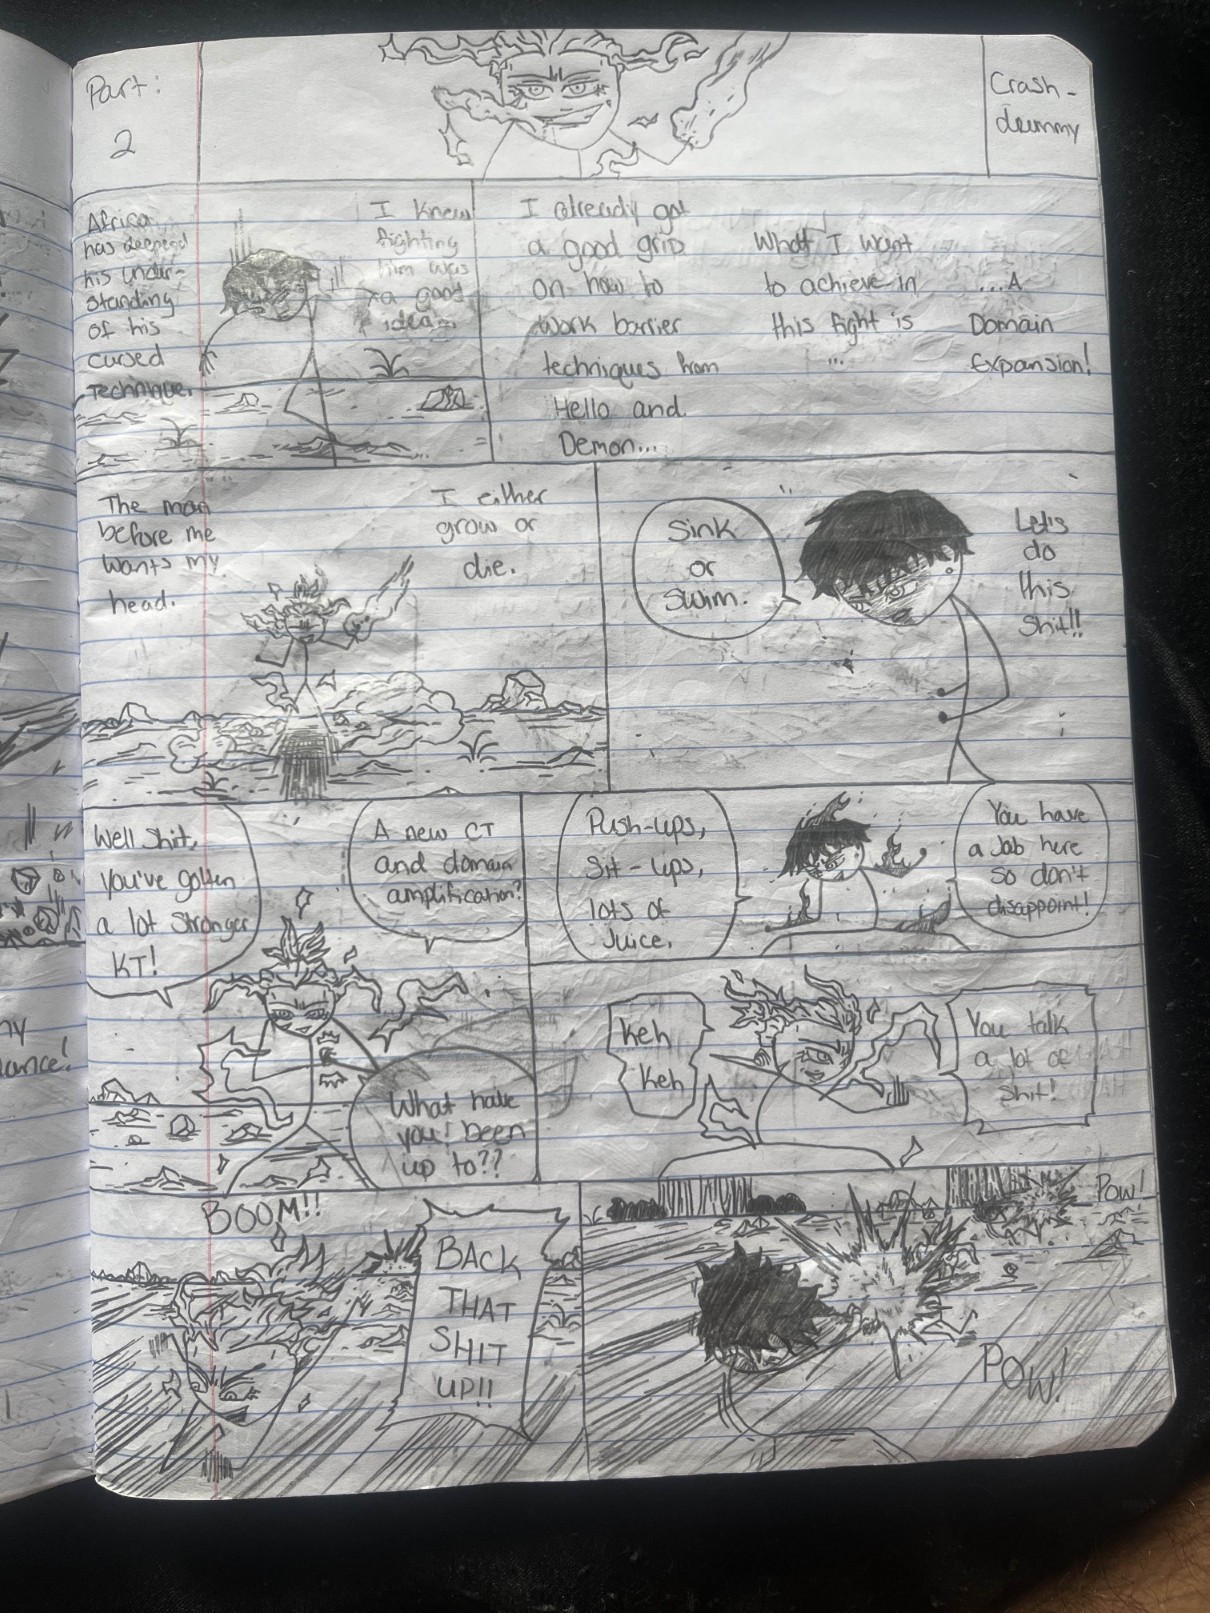 Part:
2
Crash-
dummy
Africa
has deepened
his under-
standing
of his
cursed
Technique.
I knew
fighting
him was
a good
idea.
I already got
a good grip
on how to
work barrier
techniques from
Hello and
Demon...
What I want
to achieve in
this fight is
...
...A
Domain
Expansion!
The man
before me
wants my
head.
I either
grow or
die.
Sink
or
Swim.
Let's
do
this
Shit!!
Well Shit,
you've gotten
a lot Stronger
KT!
A new CT
and domain
amplification?
What have
you! been
up to??
Push-ups,
Sit-ups,
lots of
Juice.
You have
a Job here
so don't
disappoint!
Keh
Keh
You talk
a lot of
Shit!
BOOM!!
BACK
THAT
SHIT
UP!!
POW!
POW!